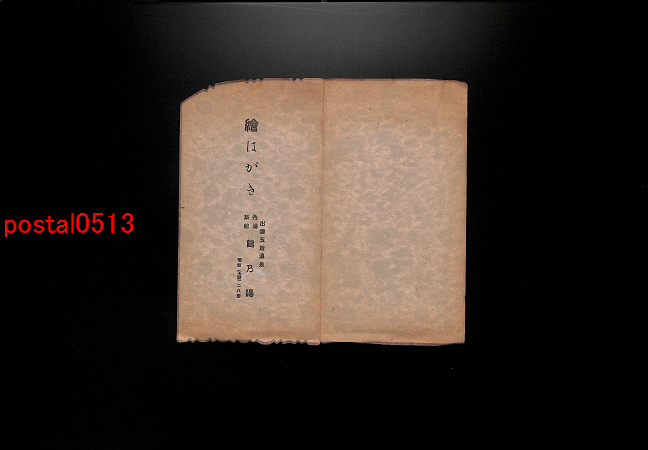 繪はがき
出雲玉造溫泉
內湯
旅館
鶴乃湯
電話玉造二八番
postal0513